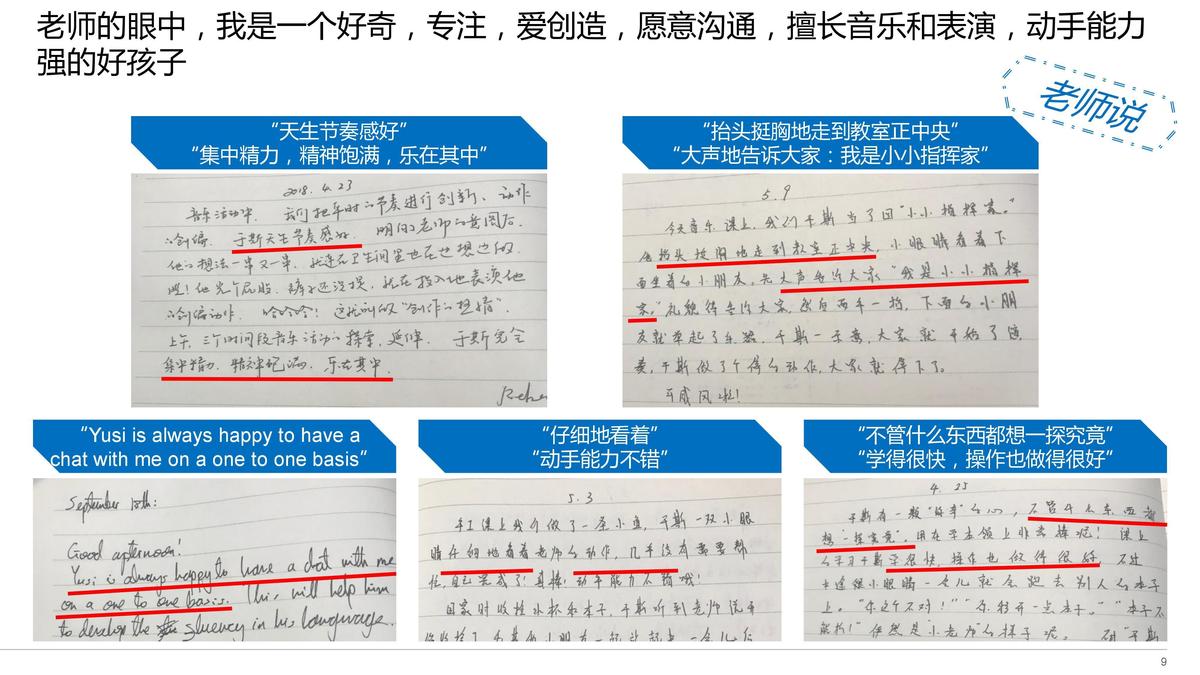 老师的眼中，我是一个好奇，专注，爱创造，愿意沟通，擅长音乐和表演，动手能力
强的好孩子
老师说
“天生节奏感好”
“集中精力，精神饱满，乐在其中”
2018.4.23
音乐活动中，我们把平时的节奏进行创新、动作
的创编。于斯天生节奏感好，明白老师的意图后，
他的想法一串又一串，就连在卫生间里也在边想边做
呢！他光个屁股，裤子还没提，就在投入地表演他
的创编动作，哈哈哈！这就叫做“创作的热情”
上午，三个时间段音乐活动的探索、延伸，于斯完全
集中精力，精神饱满，乐在其中。
“抬头挺胸地走到教室正中央”
“大声地告诉大家：我是小小指挥家”
5.9
今天音乐课上，我们于斯当了回“小小指挥家。”
他抬头挺胸地走到教室正中央，小眼睛看着下
面坐着的小朋友，先大声告诉大家“我是小小指挥
家，”礼貌得告诉大家，然后两手一指，下面的小朋
友就拿起了乐器，于斯一示意，大家就开始了演
奏，于斯做了个停的动作，大家就停下了。
可威风啦！
“Yusi is always happy to have a
chat with me on a one to one basis”
September 18th:
Good afternoon!
Yusi is always happy to have a chat with me
on a one to one basis. This will help him
to develop the fluency in his language.
“仔细地看着”
“动手能力不错”
5.3
手工课上我们做了一条小鱼，于斯一双小眼
睛仔细地看着老师的动作，几乎没有需要帮
忙，自己完成了！真棒！动手能力不错哦！
回家时收拾水杯和本子，于斯听到老师说可
“不管什么东西都想一探究竟”
“学得很快，操作也做得很好”
4.25
于斯有一颗“好奇”的心，不管什么东西都
想一探究竟”，用在学本领上非常棒呢！课上
的学习于斯学得很快，操作也做得很好，不过
上。“你这个不对！”
9